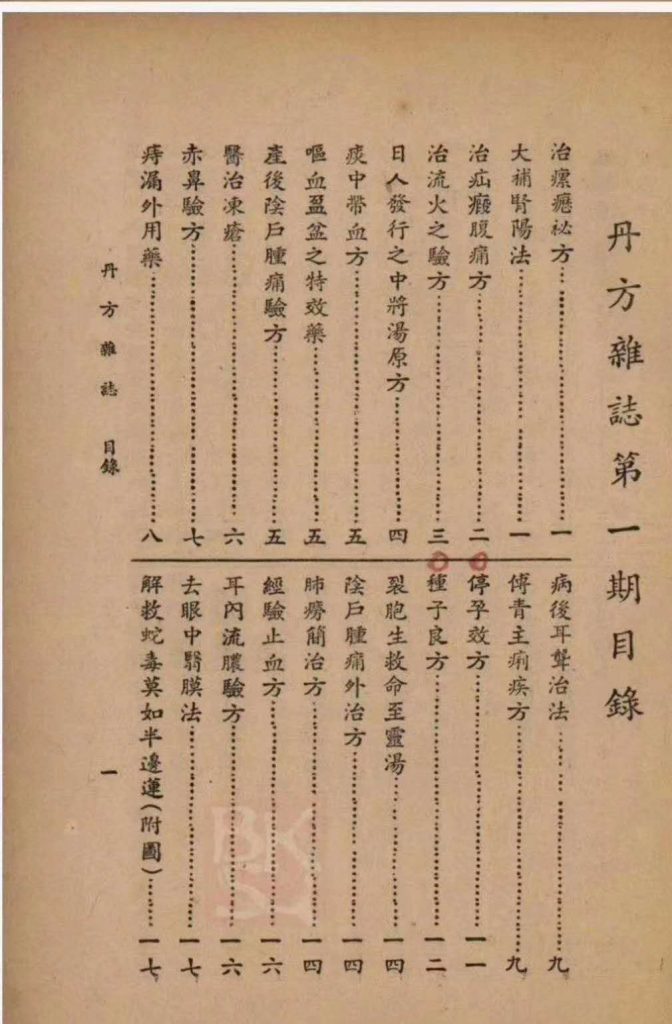 丹方雜誌第一期目錄
治瘰癧祕方…一
大補腎陽法…一
治疝癥腹痛方…二
治流火之驗方…三
日人發行之中將湯原方…四
痰中帶血方…五
嘔血盈盆之特效藥…五
產後陰戶腫痛驗方…五
醫治凍瘡…六
赤鼻驗方…七
痔漏外用藥…八
病後耳聾治法…九
傅青主痢疾方…九
停孕效方…一一
種子良方…一二
裂胞生救命至靈湯…一四
陰戶腫痛外治方…一四
肺癆簡治方…一四
經驗止血方…一六
耳內流膿驗方…一六
去眼中翳膜法…一七
解救蛇毒莫如半邊蓮(附圖)…一七
丹方雜誌 目錄
一